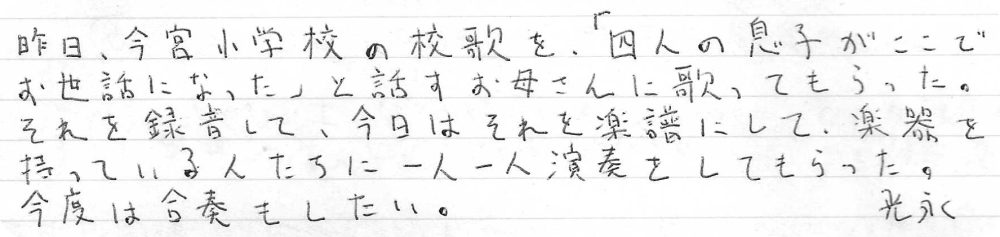 昨日、今宮小学校の校歌を、「四人の息子がここで
お世話になった」と話すお母さんに歌ってもらった。
それを録音して、今日はそれを楽譜にして、楽器を
持っている人たちに一人一人演奏をしてもらった。
今度は合奏もしたい。 光永